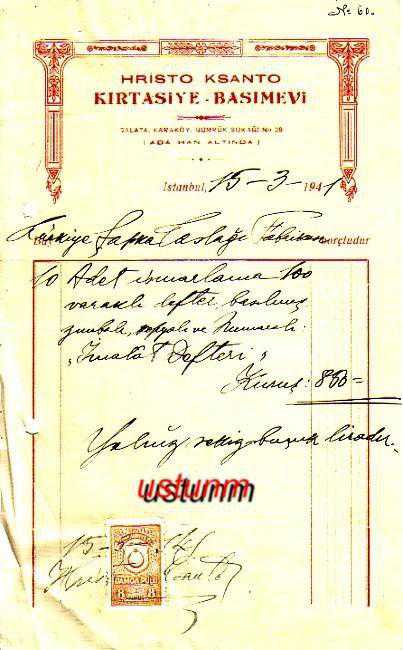 № 60.
HRISTO KSANTO
KIRTASİYE - BASIMEVİ
GALATA, KARAKÖY, GÜMRÜK SOKAĞI No 28
( ADA HAN ALTINDA )
Istanbul, 15-3-1941
Türkiye Şapka Taslağı Fabrikası borçludur
10 Adet ısmarlama 100
varaklı defter basılmış
zımbalı, ve Numaralı.
"İmalât Defteri"
Kuruş: 850=
Yalnız sekiz buçuk liradır.
ustunm
15-3-941
DAMGA PULU
8 8